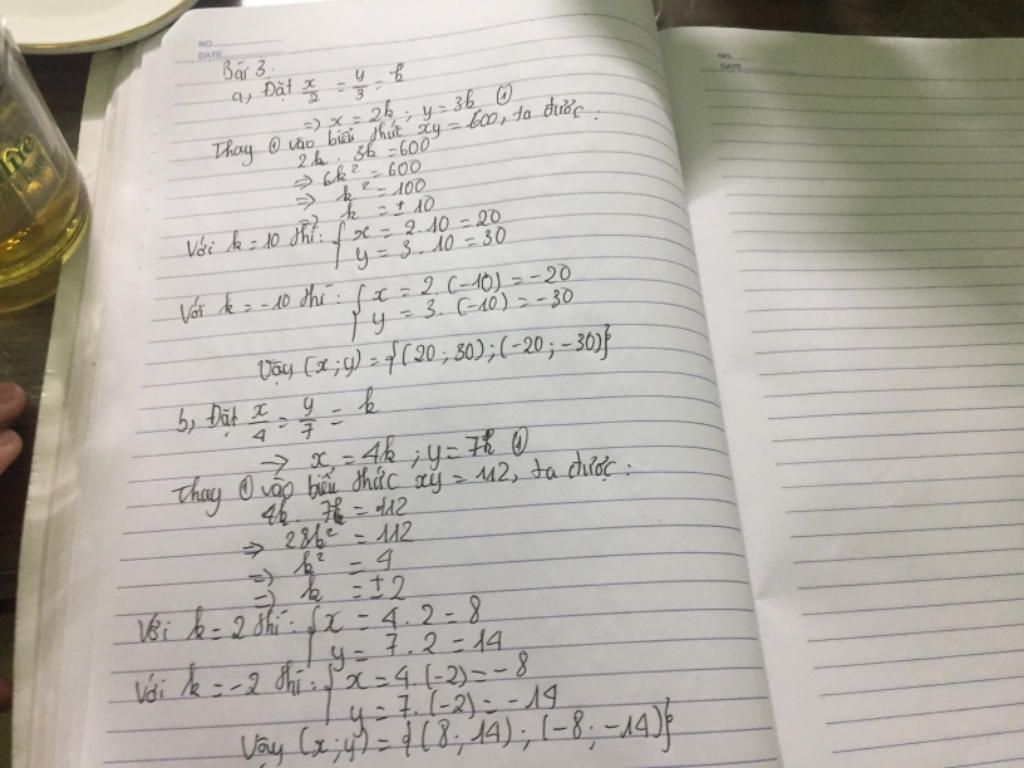 NO.
DATE
Bài 3.
a, Đặt x/2 = y/3 = k
=> x = 2k ; y = 3k ①
Thay ① vào biểu thức xy = 600, ta được :
2k . 3k = 600
=> 6k² = 600
=> k² = 100
=> k = ± 10
Với k = 10 thì : { x = 2 . 10 = 20
y = 3 . 10 = 30
Với k = -10 thì : { x = 2 . (-10) = -20
y = 3 . (-10) = -30
Vậy (x ; y) = {(20 ; 30) ; (-20 ; -30)}
b, Đặt x/4 = y/7 = k
=> x = 4k ; y = 7k ①
Thay ① vào biểu thức xy = 112, ta được :
4k 7k = 112
=> 28k² = 112
=> k² = 4
=> k = ± 2
Với k = 2 thì : { x = 4 . 2 = 8
y = 7 . 2 = 14
Với k = -2 thì : { x = 4 . (-2) = -8
y = 7 . (-2) = -14
Vậy (x ; y) = {(8 ; 14) ; (-8 ; -14)}
NO.
DATE